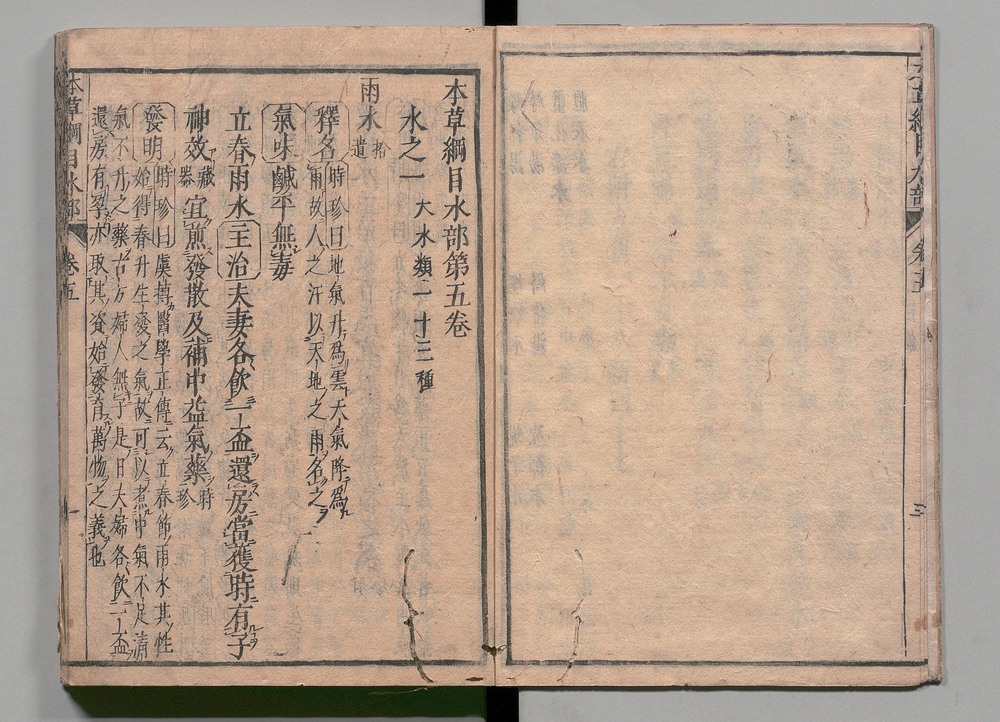 本草綱目水部第五卷
水之一 天水類一十三種
雨水拾遺
釋名時珍曰地氣升爲雲天氣降爲
雨故人之汗以天地之雨名之
氣味鹹平無毒
立春雨水主治夫妻各飲一盃還房當獲時有子
神效藏器宜煎發散及補中益氣藥時珍
發明時珍曰虞摶醫學正傳云立春節雨水其性
始得春升生發之氣故可以煮中氣不足清
氣不升之藥古方婦人無子是日夫婦各飲一盃
還房有孕亦取其資始發育萬物之義也
本草綱目水部 卷五 一